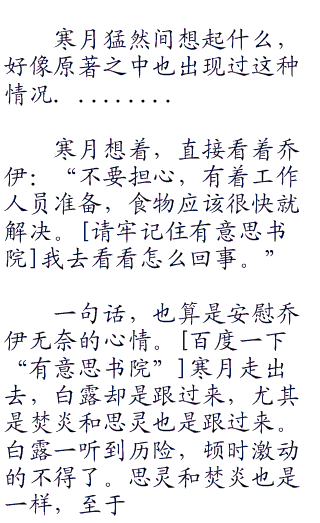 寒月猛然间想起什么，
好像原著之中也出现过这种
情况．........
寒月想着，直接看着乔
伊：“不要担心，有着工作
人员准备，食物应该很快就
解决。[请牢记住有意思书
院]我去看看怎么回事。”
一句话，也算是安慰乔
伊无奈的心情。[百度一下
“有意思书院”]寒月走出
去，白露却是跟过来，尤其
是焚炎和思灵也是跟过来。
白露一听到历险，顿时激动
的不得了。思灵和焚炎也是
一样，至于